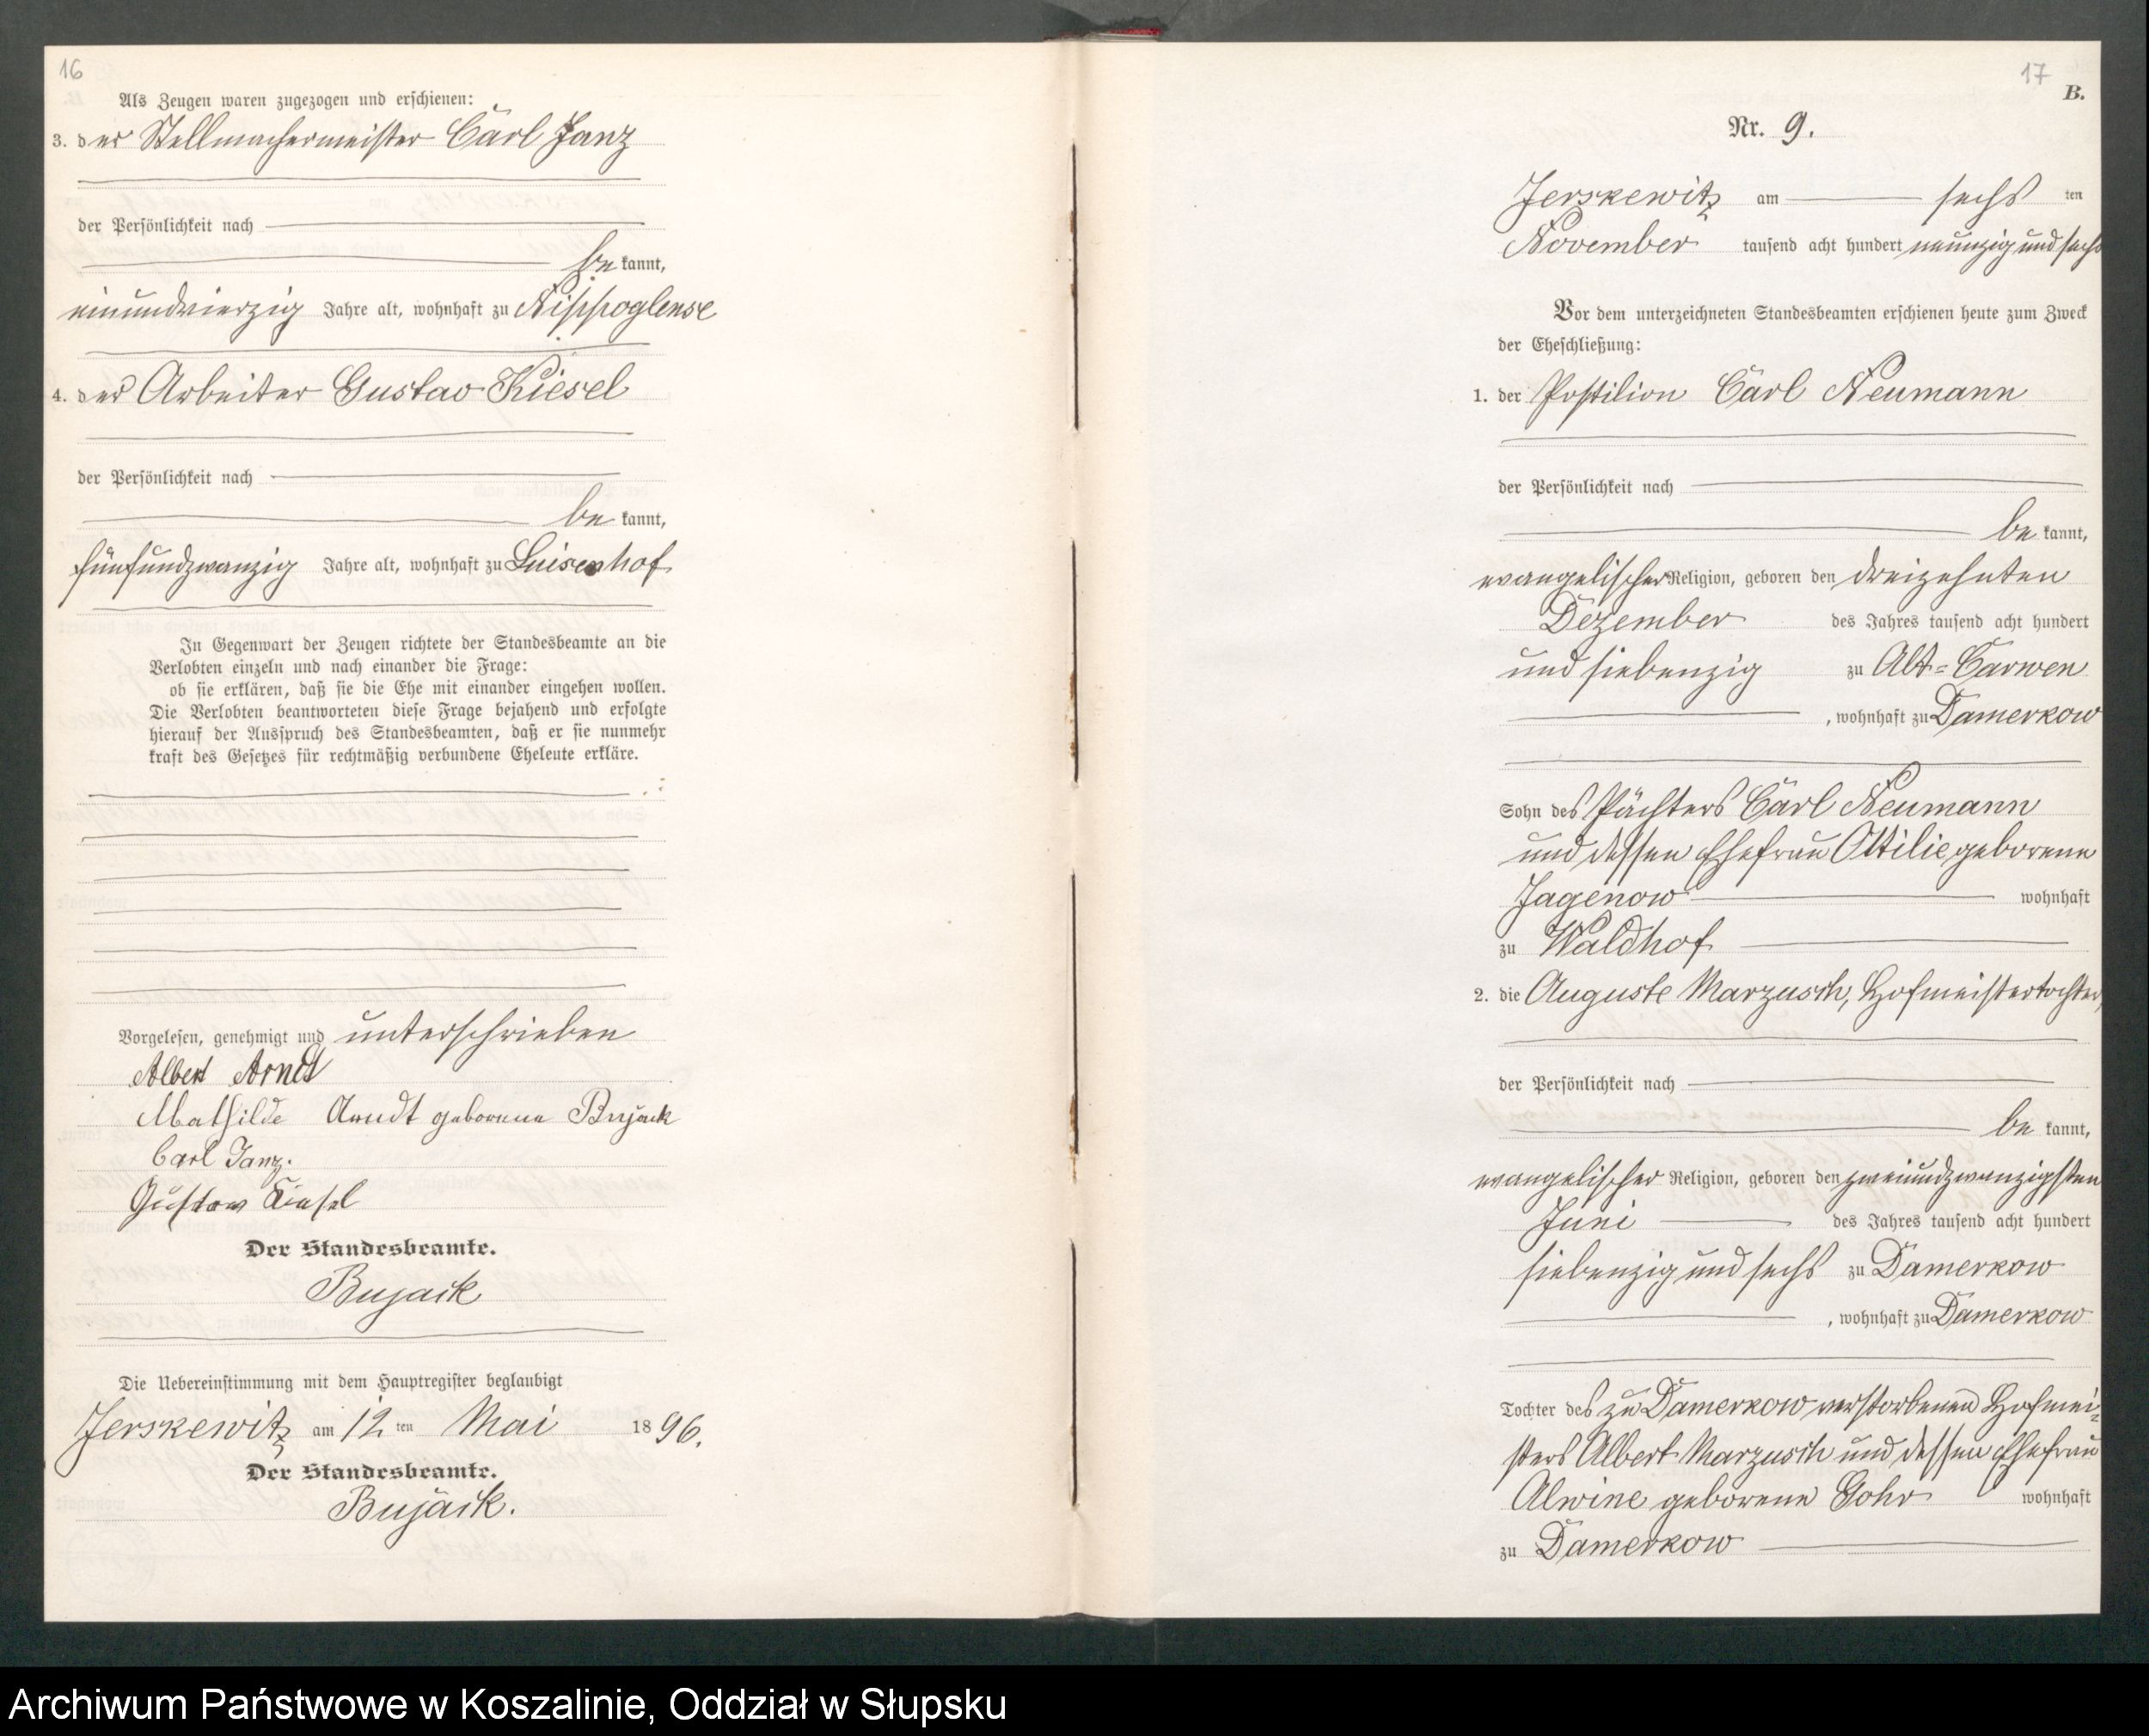 16
Als Zeugen waren zugezogen und erschienen:
3. der Stellmachermeister Carl Janz
der Persönlichkeit nach
be kannt,
einundvierzig Jahre alt, wohnhaft zu Nippoglense
4. der Arbeiter Gustav Kiesel
der Persönlichkeit nach
be kannt,
fünfundzwanzig Jahre alt, wohnhaft zu Luisenhof
In Gegenwart der Zeugen richtete der Standesbeamte an die
Verlobten einzeln und nach einander die Frage:
ob sie erklären, daß sie die Ehe mit einander eingehen wollen.
Die Verlobten beantworteten diese Frage bejahend und erfolgte
hierauf der Ausspruch des Standesbeamten, daß er sie nunmehr
kraft des Gesetzes für rechtmäßig verbundene Eheleute erkläre.
Vorgelesen, genehmigt und unterschrieben
Albert Arndt
Mathilde Arndt geborene Bujack
Carl Janz.
Gustav Kiesel
Der Standesbeamte.
Bujack
Die Uebereinstimmung mit dem Hauptregister beglaubigt
Jerskewitz am 12 ten Mai 1896.
Der Standesbeamte.
Bujack.
17
B.
Nr. 9.
Jerskewitz am sechs ten
November tausend acht hundert neunzig und sechs
Vor dem unterzeichneten Standesbeamten erschienen heute zum Zweck
der Eheschließung:
1. der Postilion Carl Neumann
der Persönlichkeit nach
be kannt,
evangelischer Religion, geboren den dreizehnten
Dezember des Jahres tausend acht hundert
und siebenzig zu Alt=Carwen
, wohnhaft zu Damerkow
Sohn des Pächters Carl Neumann
und dessen Ehefrau Ottilie geborene
Jagenow wohnhaft
zu Waldhof
2. die Auguste Marzusch, Hofmeistertochter,
der Persönlichkeit nach
be kannt,
evangelischer Religion, geboren den zweiundzwanzigsten
Juni des Jahres tausend acht hundert
siebenzig und sechs zu Damerkow
, wohnhaft zu Damerkow
Tochter des zu Damerkow verstorbenen Hofmei=
sters Albert Marzusch und dessen Ehefrau
Alwine geborene Gohr wohnhaft
zu Damerkow
Archiwum Państwowe w Koszalinie, Oddział w Słupsku